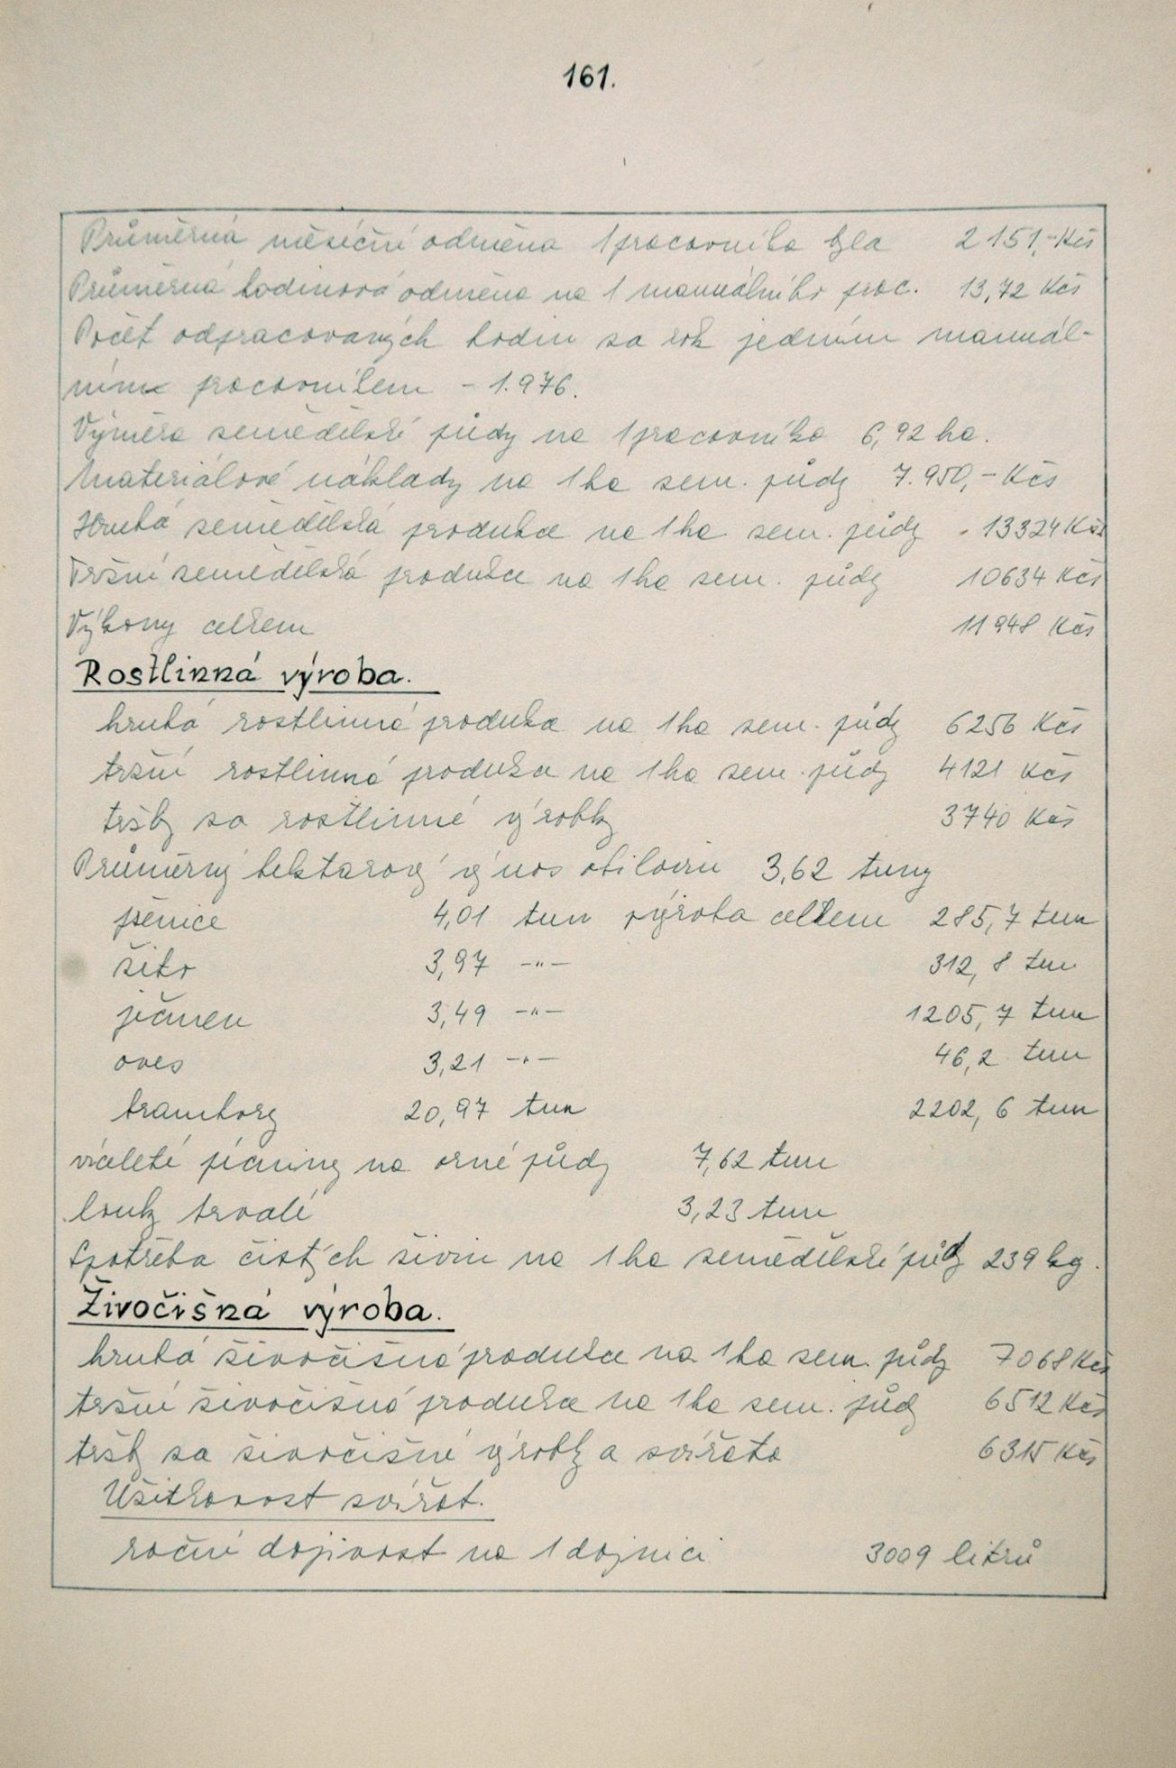 161.
Průměrná měsíční odměna 1 pracovníka byla 2 151,- Kčs
Průměrná hodinová odměna na 1 manuálního prac. 13,72 Kčs
Počet odpracovaných hodin za rok jedním manuál-
ním pracovníkem - 1.976.
Výměra zemědělské půdy na 1 pracovníka 6,92 ha.
Materiálové náklady na 1 ha zem. půdy 7.950,- Kčs
Hrubá zemědělská produkce na 1 ha zem. půdy - 13324 Kčs
Tržní zemědělská produkce na 1 ha zem. půdy 10634 Kčs
Výkony celkem 11948 Kčs
Rostlinná výroba.
hrubá rostlinná produkce na 1 ha zem. půdy 6256 Kčs
tržní rostlinná produkce na 1 ha zem. půdy 4121 Kčs
tržby za rostlinné výrobky 3740 Kčs
Průměrný hektarový výnos obilovin 3,62 tuny
pšenice 4,01 tun výroba celkem 285,7 tun
žito 3,97 -"- 312,8 tun
ječmen 3,49 -"- 1205,7 tun
oves 3,21 -"- 46,2 tun
brambory 20,97 tun 2202,6 tun
víceleté pícniny na orné půdy 7,62 tun
louky trvalé 3,23 tun
Spotřeba čistých živin na 1 ha zemědělské půdy 239 kg.
Živočišná výroba.
hrubá živočišná produkce na 1 ha zem. půdy 7068 Kčs
tržní živočišná produkce na 1 ha zem. půdy 6512 Kčs
tržby za živočišné výrobky a zvířata 6315 Kčs
Užitkovost zvířat.
roční dojivost na 1 dojnici 3009 litrů